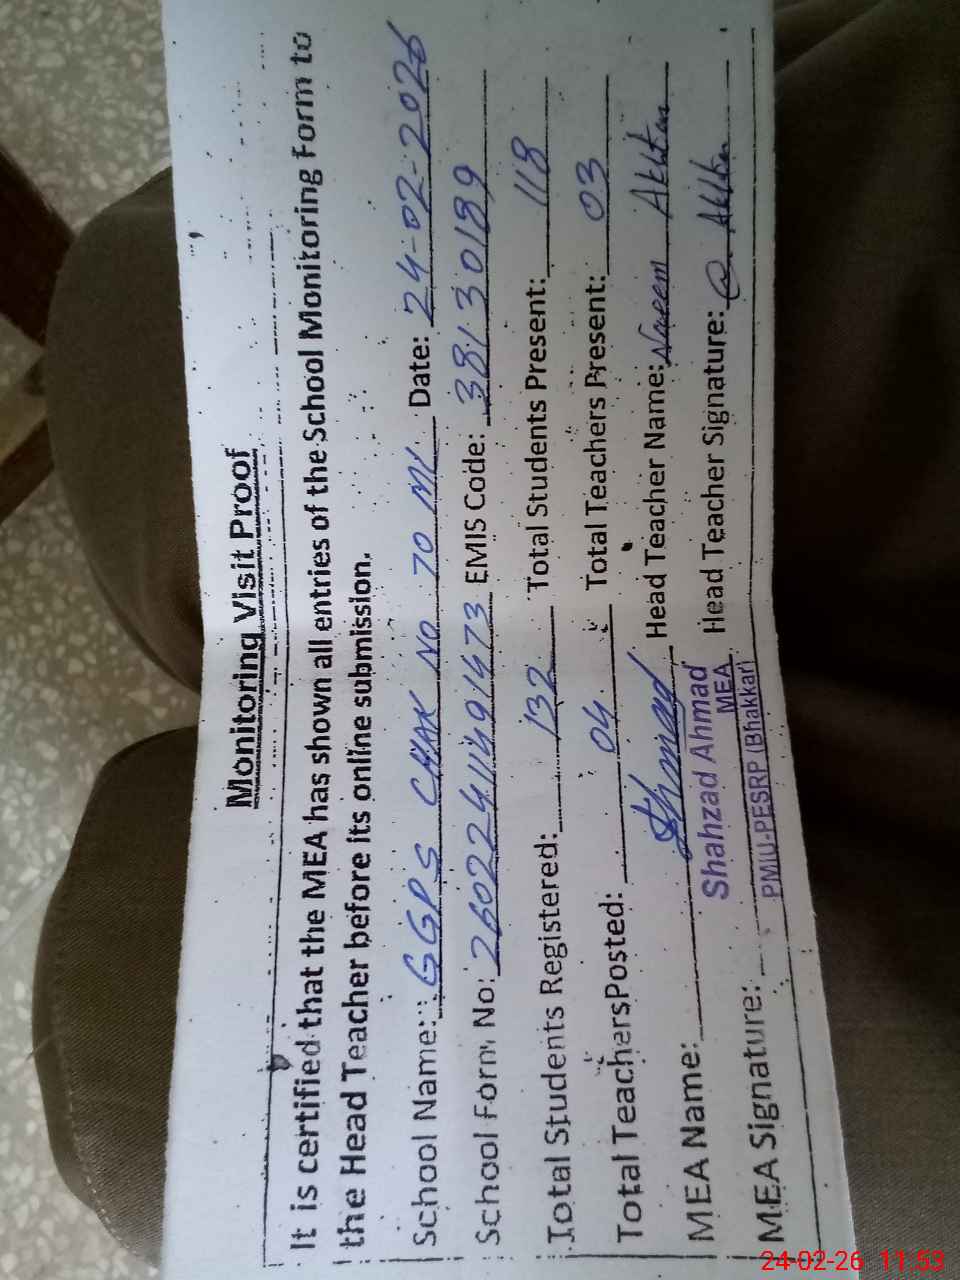 Monitoring Visit Proof
It is certified that the MEA has shown all entries of the School Monitoring Form to
the Head Teacher before its online submission.
School Name: GGPS CHAK NO 70 ML Date: 24-02-2026
School Form No: 260224114914 73 EMIS Code: 38130189
Total Students Registered: 132 Total Students Present: 118
Total Teachers Posted: 04 Total Teachers Present: 03
MEA Name: Head Teacher Name: Naeem Akhtar
Shahzad Ahmad
MEA
PMIU-PESRP (Bhakkar)
MEA Signature: Head Teacher Signature:
24-02-26 11:53